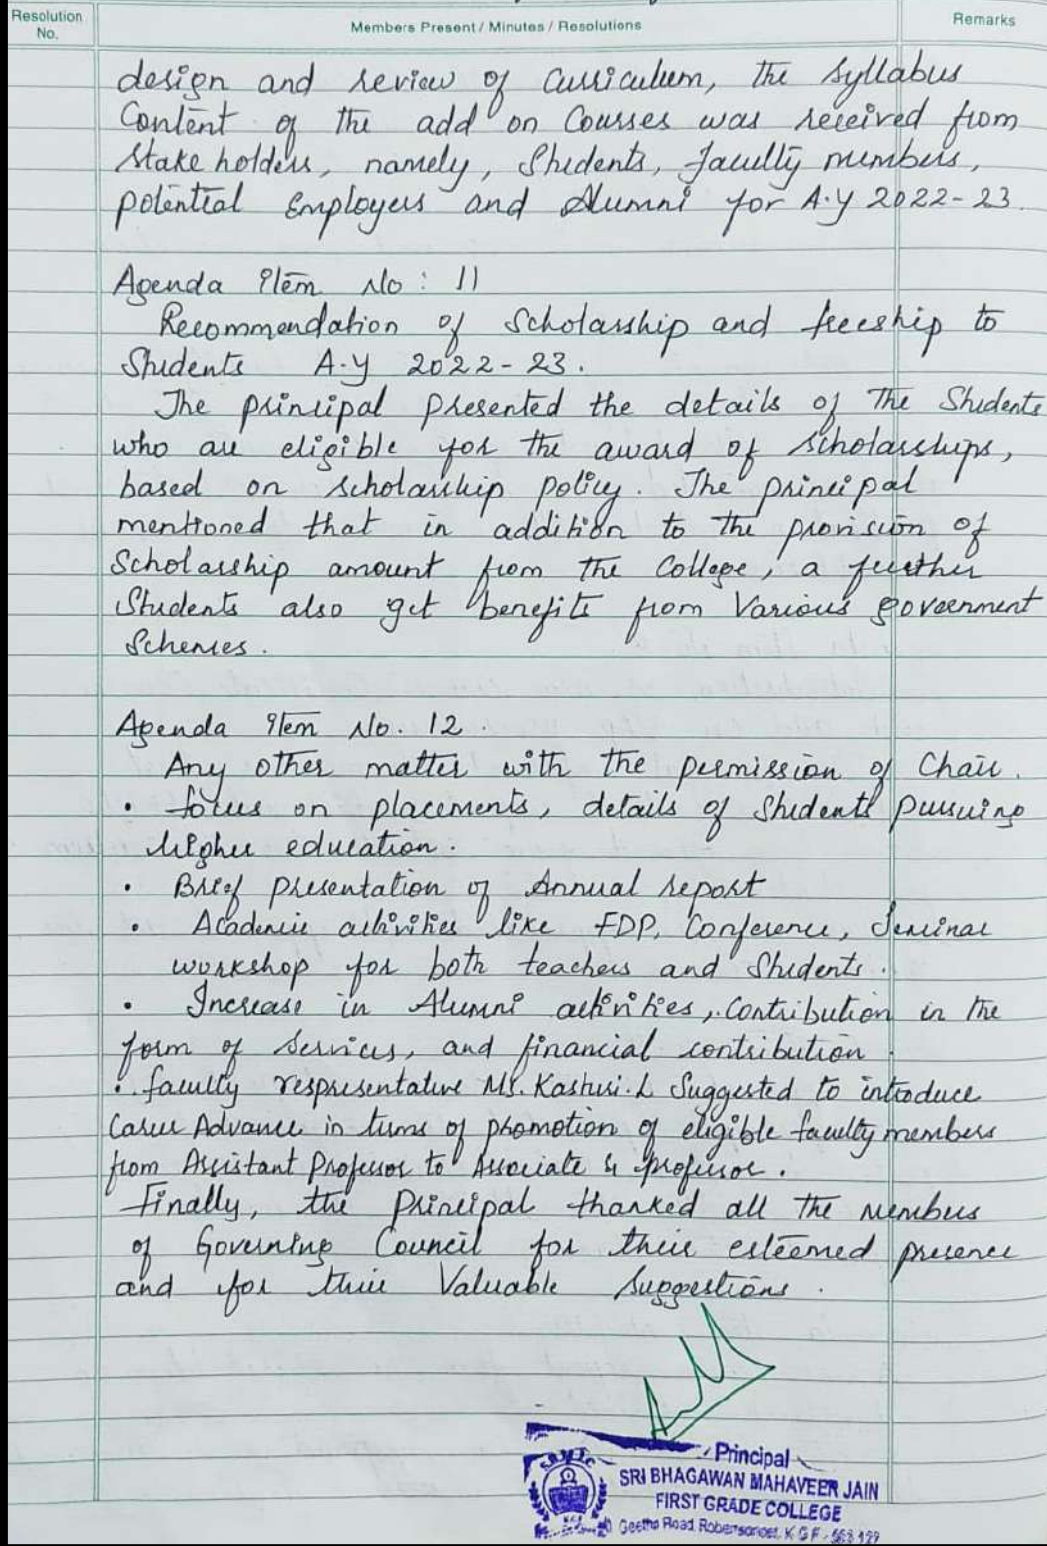 Resolution No.
Members Present / Minutes / Resolutions
Remarks
design and review of Curriculum, the syllabus
Content of the add on Courses was received from
stake holders, namely, Students, faculty members,
potential employers and Alumni for A.Y 2022-23.
Agenda Item No: 11
Recommendation of Scholarship and freeship to
Students A.Y 2022-23.
The principal presented the details of the Students
who are eligible for the award of scholarships,
based on scholarship policy. The principal
mentioned that in addition to the provision of
Scholarship amount from the College, a further
Students also get benefits from Various government
Schemes.
Agenda Item No. 12.
Any other matter with the permission of Chair.
• focus on placements, details of Students pursuing
higher education.
• Brief presentation of Annual report
• Academic activities like FDP, Conference, Seminar
workshop for both teachers and Students.
• Increase in Alumni activities, Contribution in the
form of Services, and financial contribution
• faculty respresentative Ms. Kasturi. L Suggested to introduce
Career Advance in terms of promotion of eligible faculty members
from Assistant Professor to Associate & professor.
Finally, the Principal thanked all the members
of Governing Council for their esteemed presence
and for their Valuable Suggestions.
Principal
SRI BHAGAWAN MAHAVEER JAIN
FIRST GRADE COLLEGE
Geetha Road, Robertsonpet, K.G.F - 563 122